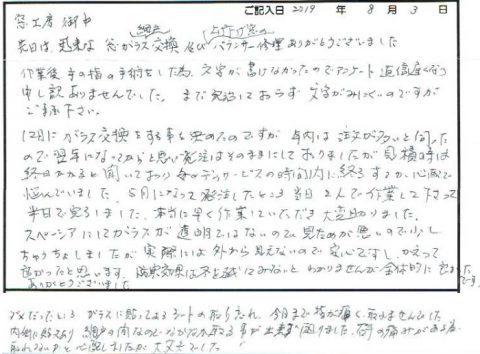 ご記入日 2019 年 8 月 3 日
窓工房 御中
先日は、迅速な 窓ガラス交換 及び バランサー修理ありがとうございました
作業後 手の指の手術をした為、文字が書けなかったのでアンケート返信遅くなり
申し訳ありませんでした。まだ完治しておらず 文字がみにくいのですが
ご了承下さい。
12月にガラス交換をする事を決めたのですが 年内は注文が多いと伺った
ので翌年になってからと思い発注はそのままにしておりましたが見積時は
終日かかると聞いており 母のデイサービスの時間内に終了するか心配で
悩んでいました。5月になって発注したところ 当日2人で作業して下さって
半日で完了しました。本当に早く作業していただき大変助りました。
スペーシアにしてガラスが透明ではないので見ためが悪いので少し
ちゅうちょしましたが 実際には外から見えないので安心ですし、かえって
良かったと思います。防寒効果は冬を越してみないとわかりませんが全体的に良かったです。
ありがとうございました。
ガラスに貼ってあるシートの取り忘れ、今日まで指が痛く取れませんでした
内側に貼っており 網戸の間なのでなかなか取る事が出来ず困りました。
取れないかと心配しましたが大丈夫でした!